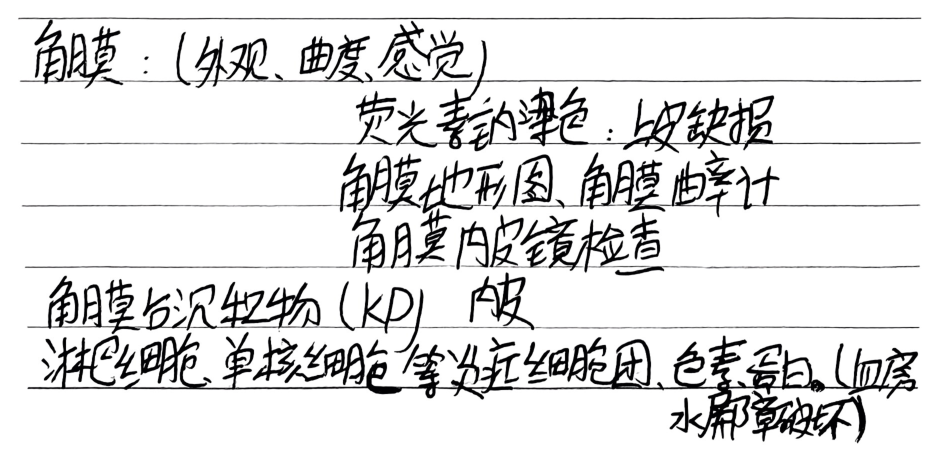 角膜：(外观、曲度、感觉)
荧光素钠染色：上皮缺损
角膜地形图、角膜曲率计
角膜内皮镜检查
角膜后沉积物(KP) 内皮
淋巴细胞、单核细胞等炎症细胞团、色素、蛋白。(血房
水屏障破坏)